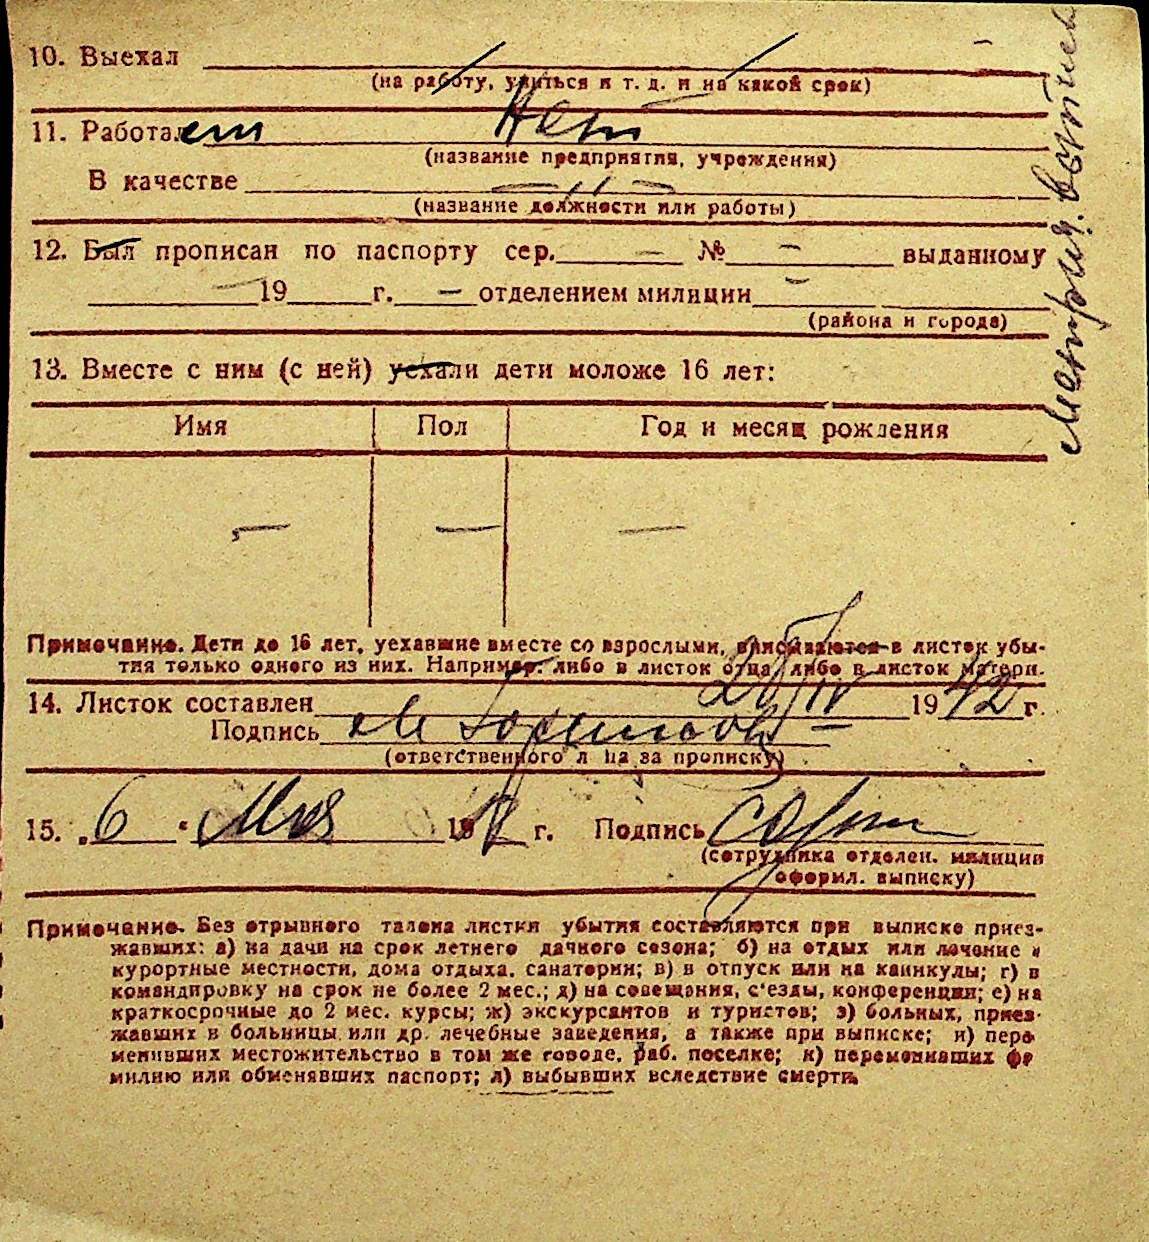 10. Выехал
(на работу, учиться и т. д. и на какой срок)
11. Работает Нет
(название предприятия, учреждения)
В качестве — " —
(название должности или работы)
12. Был прописан по паспорту сер. — № — выданному
— 19 г. — отделением милиции —
(района и города)
13. Вместе с ним (с ней) уехали дети моложе 16 лет:
Имя Пол Год и месяц рождения
— — —
Примечание. Дети до 16 лет, уехавшие вместе со взрослыми, вписываются в листок убы-
тия только одного из них. Например: либо в листок отца либо в листок матери.
14. Листок составлен IV 1942 г.
Подпись
(ответственного лица за прописку)
15. „6 " Мая 19 г. Подпись
(сотрудника отделен. милиции
оформл. выписку)
Примечание. Без отрывного талона листки убытия составляются при выписке приез-
жавших: а) на дачи на срок летнего дачного сезона; б) на отдых или лечение в
курортные местности, дома отдыха, санатории; в) в отпуск или на каникулы; г) в
командировку на срок не более 2 мес.; д) на совещания, с'езды, конференции; е) на
краткосрочные до 2 мес. курсы; ж) экскурсантов и туристов; з) больных, приез-
жавших в больницы или др. лечебные заведения, а также при выписке; и) пере-
менивших местожительство в том же городе, раб. поселке; к) переменивших фа-
милию или обменявших паспорт; л) выбывших вследствие смерти.